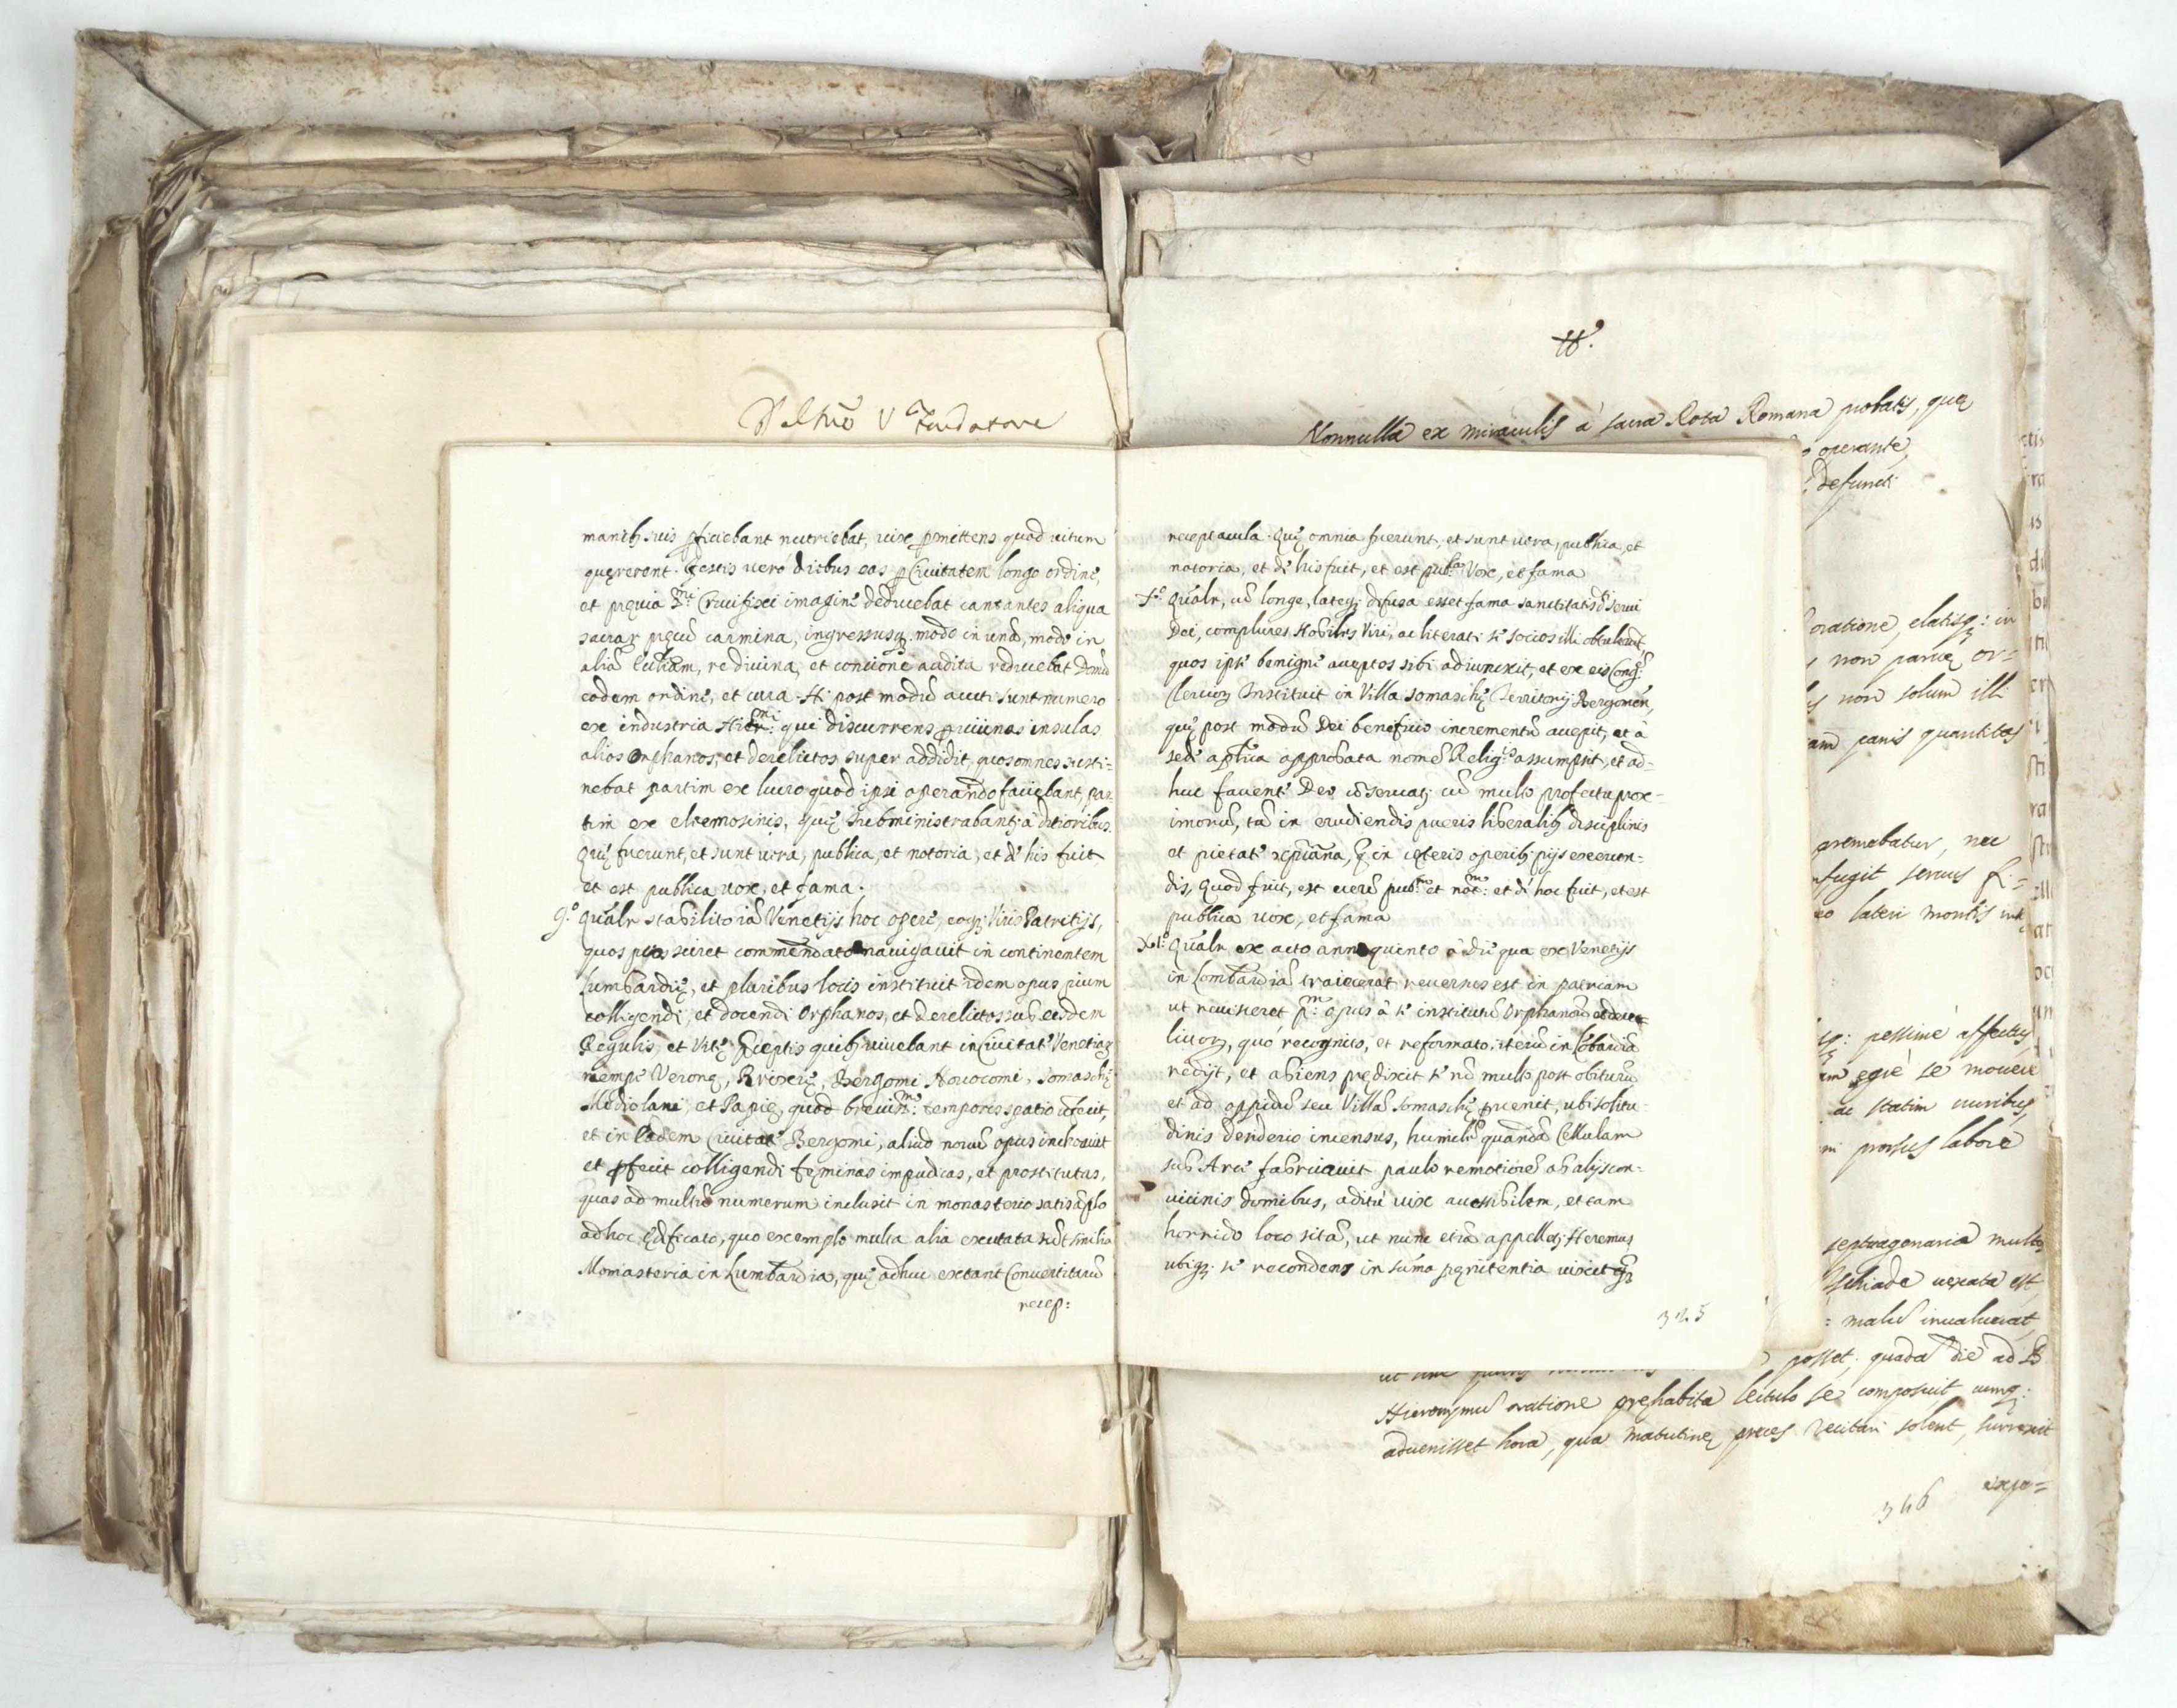 Del Nrõ V. Fundatore
manibꝫ suis ꝑficiebant nutriebat, vix ꝑmittens quod victum
quęrerent. Festis verò diebus eos ꝑ Civitatem longo ordine,
et pręvia Dni Crucifixi imagine deducebat cantantes aliqua
sacrar precũ carmina, ingressusq. modo in unã, modo in
aliã Ecclãm, re divina, et concione audita reducebat Domũ
eodem ordine, et cura. Hi post modũ aucti sunt numero
ex industria Hiermi. qui discurrens ꝑ vicinas insulas
alios Orphanos, et derelictos super addidit, quos omnes susti=
nebat partim ex lucro quod ipsi operando faciebant, par=
tim ex elemosinis, quę subministrabantꝫ à ditioribus.
Quę fuerunt, et sunt vera, publica, et notoria, et de his fuit
et est publica vox, et fama.
9.º Qualr stabilito iã Venetijs hoc opere, eoq. Viris Patritijs,
quos pios sciret commendato navigavit in continentem
Lumbardię, et pluribus locis instituit idem opus pium
colligendi, et docendi Orphanos, et derelictos sub eisdem
Regulis, et Vitę ꝑceptis quibꝫ vivebant in Civitate Venetiaꝝ
nempe Veronę, Brixię, Bergomi, Novocomi, Somaschę
Mediolani, et Papię, quod brevism. temporis spatio ꝯfecit,
et in eadem Civitate Bergomi, aliud novũ opus inchoavit
et ꝑfecit colligendi fęminas impudicas, et prostitutas,
quas ad multũ numerum inclusit in monasterio satis ãplo
ad hoc ędificato, quo exemplo multa alia excitata sũt similia
Monasteria in Lumbardia, quę adhuc extant Convertitarũ
recep:
receptacula. Quę omnia fuerunt, et sunt vera, publica, et
notoria, et de his fuit, et est publca Vox, et fama
Xº. Qualr, cũ longe, lateq. difusa esset fama sanctitatis d. servi
Dei, complures Nobiles Viri, ac literati se socios illi obtulerũt,
quos ipse benigne acceptos sibi adiunxit, et ex eis Congm.
Clericoꝝ Instituit in Villa Somaschę Territorij Bergomen,
quę post modũ Dei beneficio incrementũ accepit, et à
sede aplica approbata nomẽ Religis. assumpsit, et ad=
huc favente Deo ꝯservatꝫ cũ multo profectu prox=
imorũ, tã in erudiendis pueris liberalibꝫ disciplinis
et pietate xp̃iana, ꝗ̃ in cęteris operibꝫ pijs exercen=
dis, Quod fuit, est verũ pubm. et notm. et de hoc fuit, et est
publica vox, et fama
XI.º Qualr ex acto anno quinto à die qua ex Venetijs
in Lombardiã traiecerat reversus est in patriam
ut reviseret pm. opus à se institutũ Orphanorũ et dere=
lictoꝝ, quó recognito, et reformato, iterũ in Lõbardiã
redijt, et abiens prędixit se nõ multo post obiturũ
et ad oppidũ seu Villã Somaschę ꝑvenit, ubi solitu=
dinis desiderio incensus, humilẽ quandã Cellulam
sub Arce fabricavit paulo remotiorẽ ab alijs con=
vicinis domibus, aditu vix accessibilem, et tam
horrido loco sitã, ut nunc etiã appelletꝫ Heremus
ubiq. se recondens in sũma pęnitentia vixit
325
Nonnulla ex miraculis à Sacra Rota Romana probatis, quę
operante,
defuncti
oratione, elatisq: in
non parvę or=
non solum illi
panis quantitas
premebatur, nec
fugit servus
lateri montis
pessime affectus
egrè se movere
ac statim viribus
prorsus labore
septuagenaria multos
Ischiade vexata est
malũ invaluerat,
posset; quadã die ad B.
Hieronymũ oratione pręhabita lectulo se composuit, cumq:
advenisset hora, qua matutinę preces recitari solent, surrexit
expe=
346